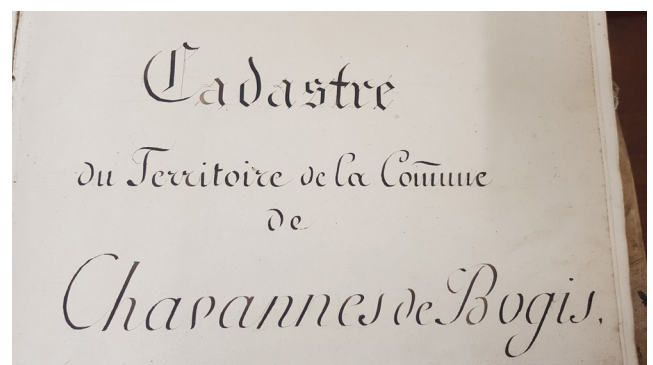 Cadastre
du Territoire de la Com̅une
de
Chavannes de Bogis.